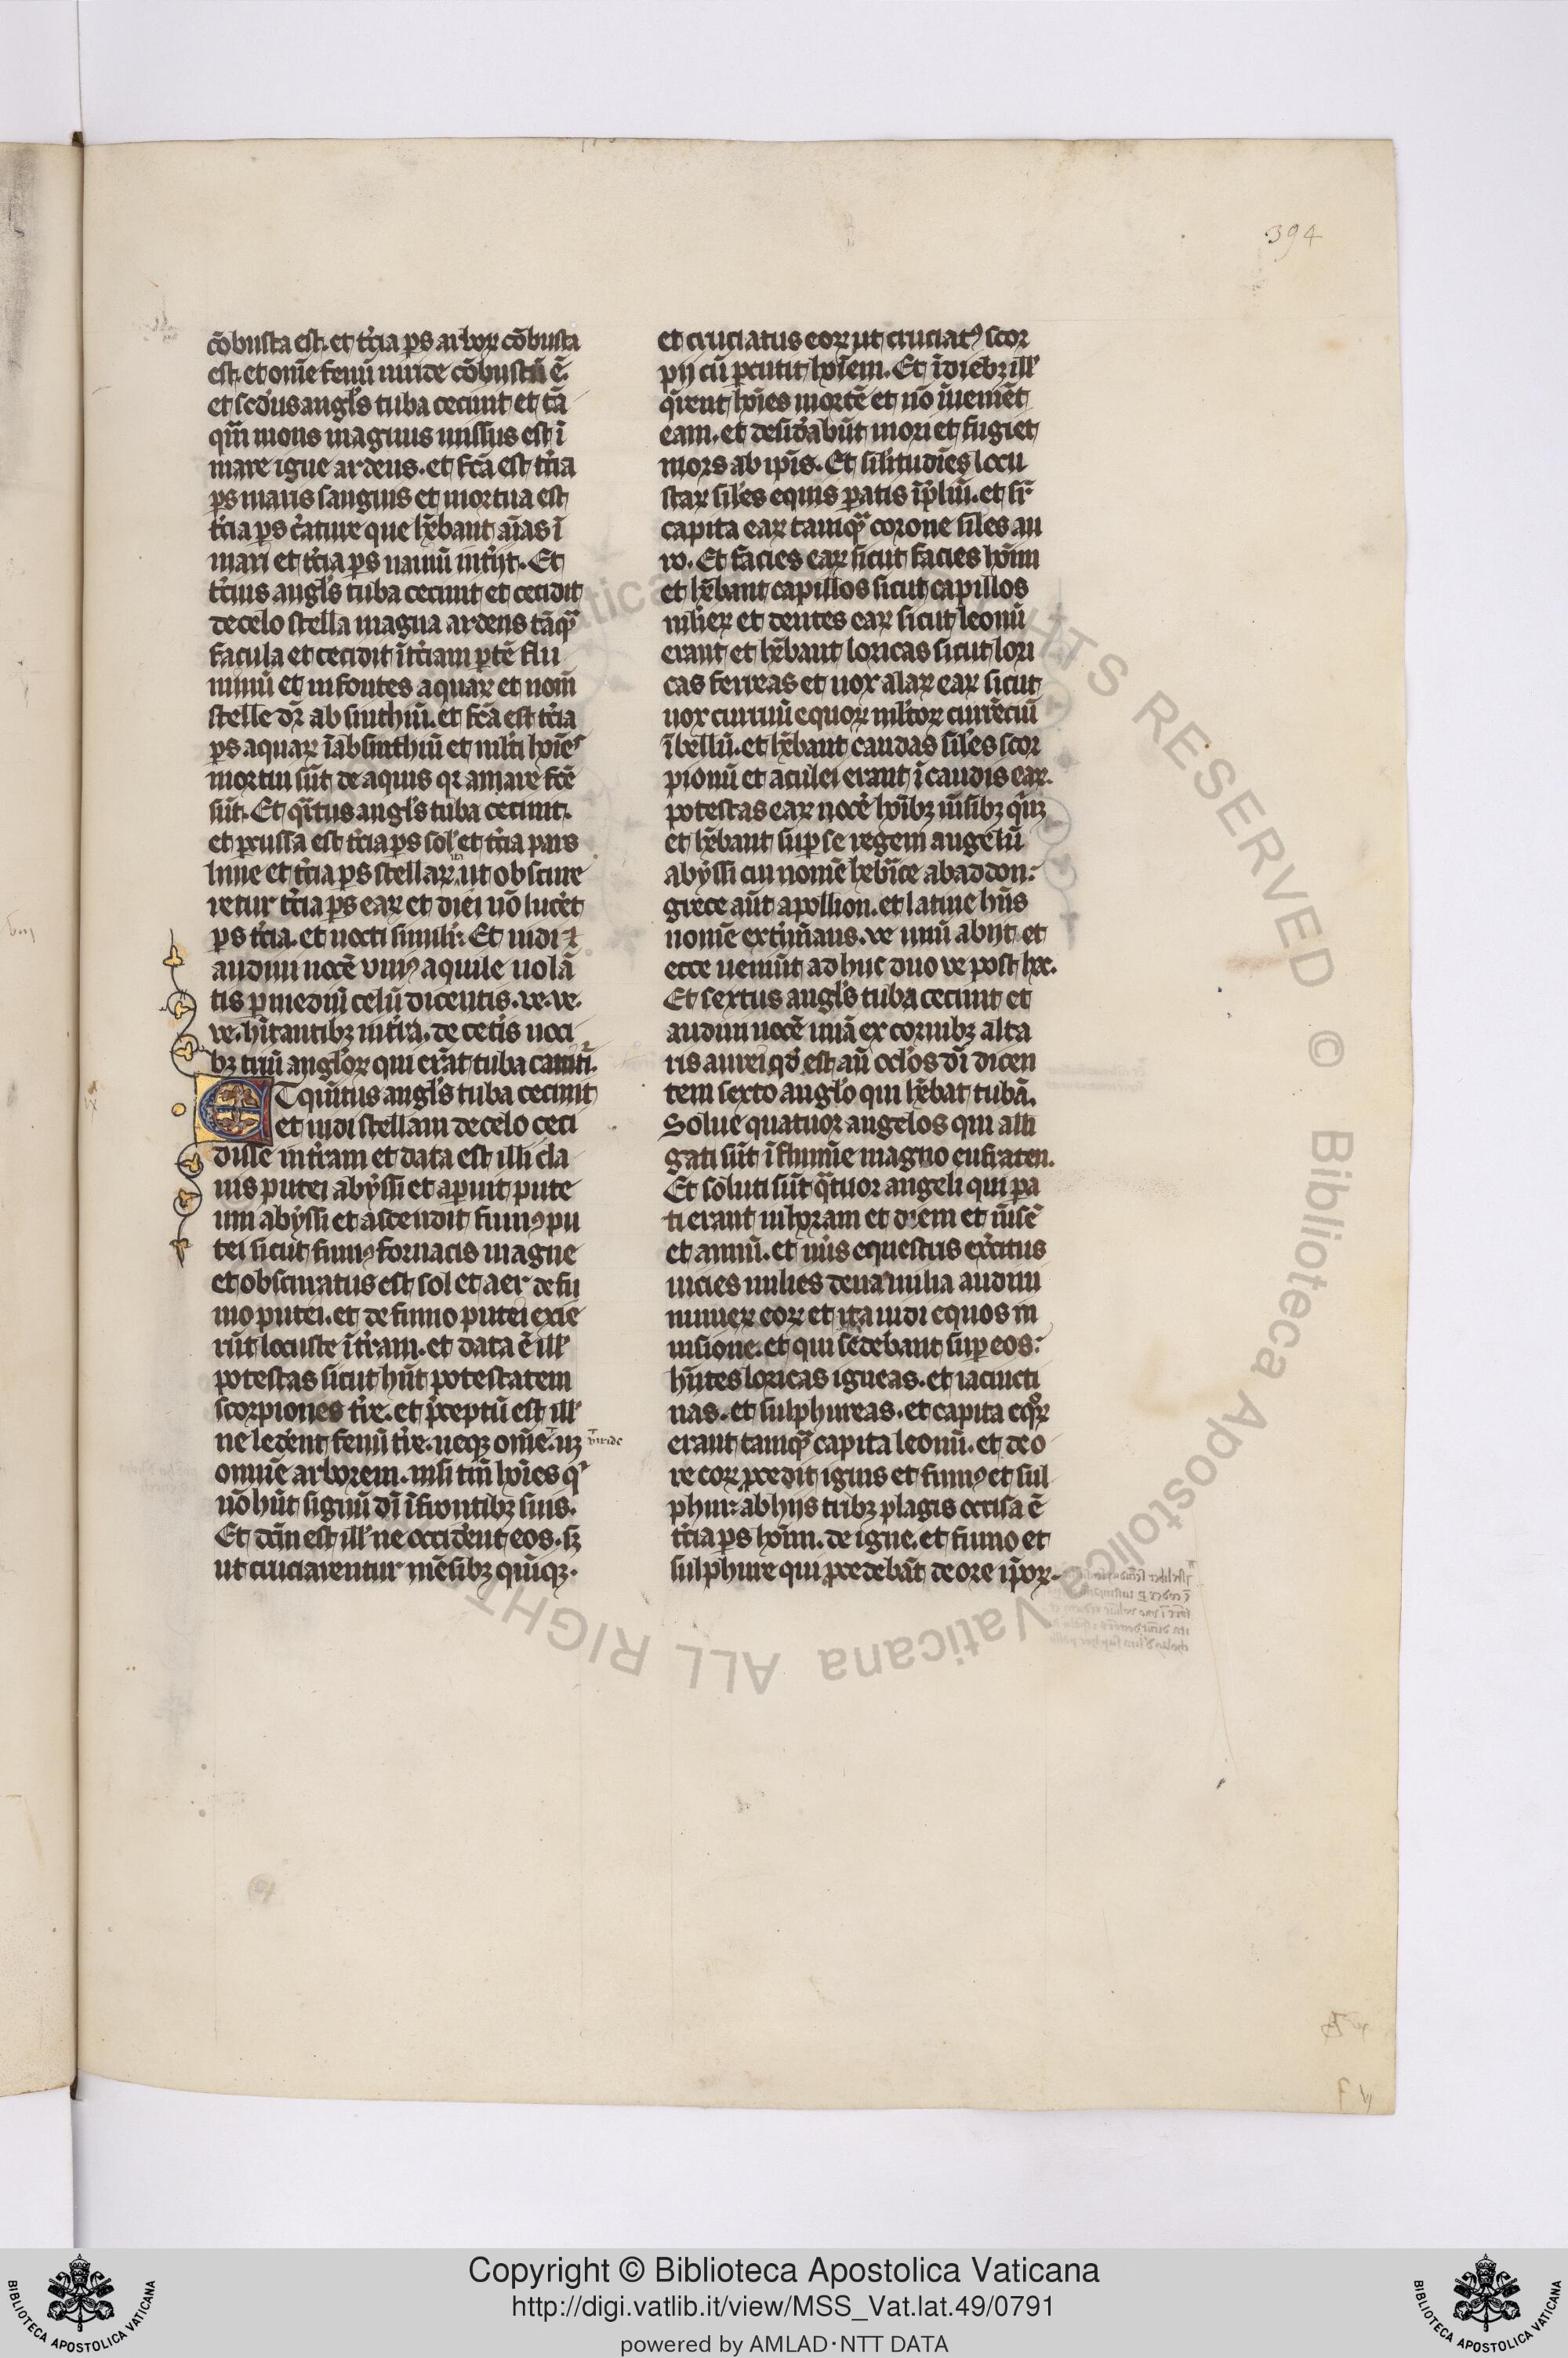 394
cōbusta est. et t̾cia ps arboꝝ cōbusta
est. et om̄e fenū uiride cōbustū ē.
et scd̾us angl̾s tuba cecinit et tā
qm̄ mons magnus missus est ī
mare igne ardens. et fc̄a est t̾cia
ps maris sanguis et mortua est
t̾cia ps c̾ature que hēbant aīas ī
mari et t̾cia ps nauiū int̾ijt. Et
t̾cius angl̾s tuba cecinit et cecidit
de celo stella magna ardens tāqᷓ
facula et cecidit ī t̾ciam ꝑtē flu
minū et in fontes aquaꝝ et nom̄
stelle dr̄ absinthiū. et fc̄a est t̾cia
ps aquaꝝ ī absinthiū et ml̾ti hoīes
mortui sūt de aquis qꝛ amare fc̄e
sūt. Et qᷓrtus angl̾s tuba cecinit.
et ꝑcussa est t̾cia ps sol̾ et t̾cia pars
lune et t̾cia ps stellaꝝ ita ut obscure
retur t̾cia ps eaꝝ et diei nō lucet̾
ps t̾cia. et nocti similit̾. Et uidi ⁊
audiui uocē uniꝰ aquile uolā
tis ꝑ mediū celū dicentis. ve. ve.
ve. hītantibꝫ in t̾ra. de cet̾is uoci
bꝫ triū angloꝝ qui erāt tuba canit̾i.
ET quītus angl̾s tuba cecinit
et uidi stellam de celo ceci
disse in t̾ram et data est illi cla
uis putei abyssi et aperuit pute
um abyssi et ascendit fumꝰ pu
tei sicut fumꝰ fornacis magne
et obscuratus est sol et aer de fu
mo putei. et de fumo putei exie
rūt locuste ī t̾ram. et data ē ill̾
potestas sicut hn̄t potestatem
scorpiones t̾re. et p̾ceptū est ill̾
ne ledēnt fenū t̾re. neqꝫ om̄e. nꝫ viride
omnē arborem. nisi tm̄ hoīes qͥ
nō hn̄t signū dī ī frontibꝫ suis.
Et dc̄m est ill̾ ne occid̾ent eos. sꝫ
ut cruciarentur mēsibꝫ quīqꝫ.
et cruciatus eoꝝ ut cruciatꝰ scor
pij cū ꝑcutit hoīem. Et ī diebꝫ ill̾
q̄rent hoīes mortē et nō īueniēt
eam. et desid̾abūt mori et fugiet
mors ab ip̄is. Et sil̾itudīes locu
staꝝ sil̾es equis ꝑatis ī pl̾iū. et sr̄
capita eaꝝ tamqᷓ corone sil̾es au
ro. Et facies eaꝝ sicut facies hoīm
et hēbant capillos sicut capillos
mlieꝝ et dentes eaꝝ sicut leonū
erant et hēbant loricas sicut lori
cas ferreas et uox alaꝝ eaꝝ sicut
uox curruū equoꝝ ml̾toꝝ currēciū
ī bellū. et hēbant caudas sil̾es scor
pionū et aculei erant ī caudis eaꝝ.
potestas eaꝝ nocē̾ hoībꝫ mēsibꝫ qīnꝫ
et hēbant suꝑ se regem angelū
abyssi cui nomē hebᵃice abaddon.
grece aūt apollion. et latine hn̄s
nomē ext̾mīans. ve unū abijt et
ecce ueniūt adhuc duo ve post hec.
Et sextus angl̾s tuba cecinit et
audiui uocē unā ex cornibꝫ alta
ris aurei qd̾ est an̄ ocl̾os dī dicen
tem sexto angl̾o qui hēbat tubā.
Solue quatuor angelos qui alli
gati sūt ī flumīe magno eufraten.
Et soluti sūt qᷓtuor angeli qui pa
ti erant in horam et diem et mēsē
et annū. et nūs equestris exc̾itus
uicies milies dena milia audiui
numeꝝ eoꝝ et ita uidi equos in
uisione. et qui sedebant suꝑ eos.
hn̄tes loricas igneas. et iacincti
nas. et sulphureas. et capita eqͦꝝ
erant tamqᷓ capita leonū. et de o
re eoꝝ ꝓcedit ignis et fumꝰ et sul
phur. ab hijs tribꝫ plagis occisa ē
t̾cia ps hoīm. de igne. et fumo et
sulphure qui ꝓcedebāt de ore ip̄oꝝ.
ALL RIGHTS RESERVED © Biblioteca Apostolica Vaticana
Copyright © Biblioteca Apostolica Vaticana
http://digi.vatlib.it/view/MSS_Vat.lat.49/0791
powered by AMLAD·NTT DATA
BIBLIOTECA APOSTOLICA VATICANA
BIBLIOTECA APOSTOLICA VATICANA